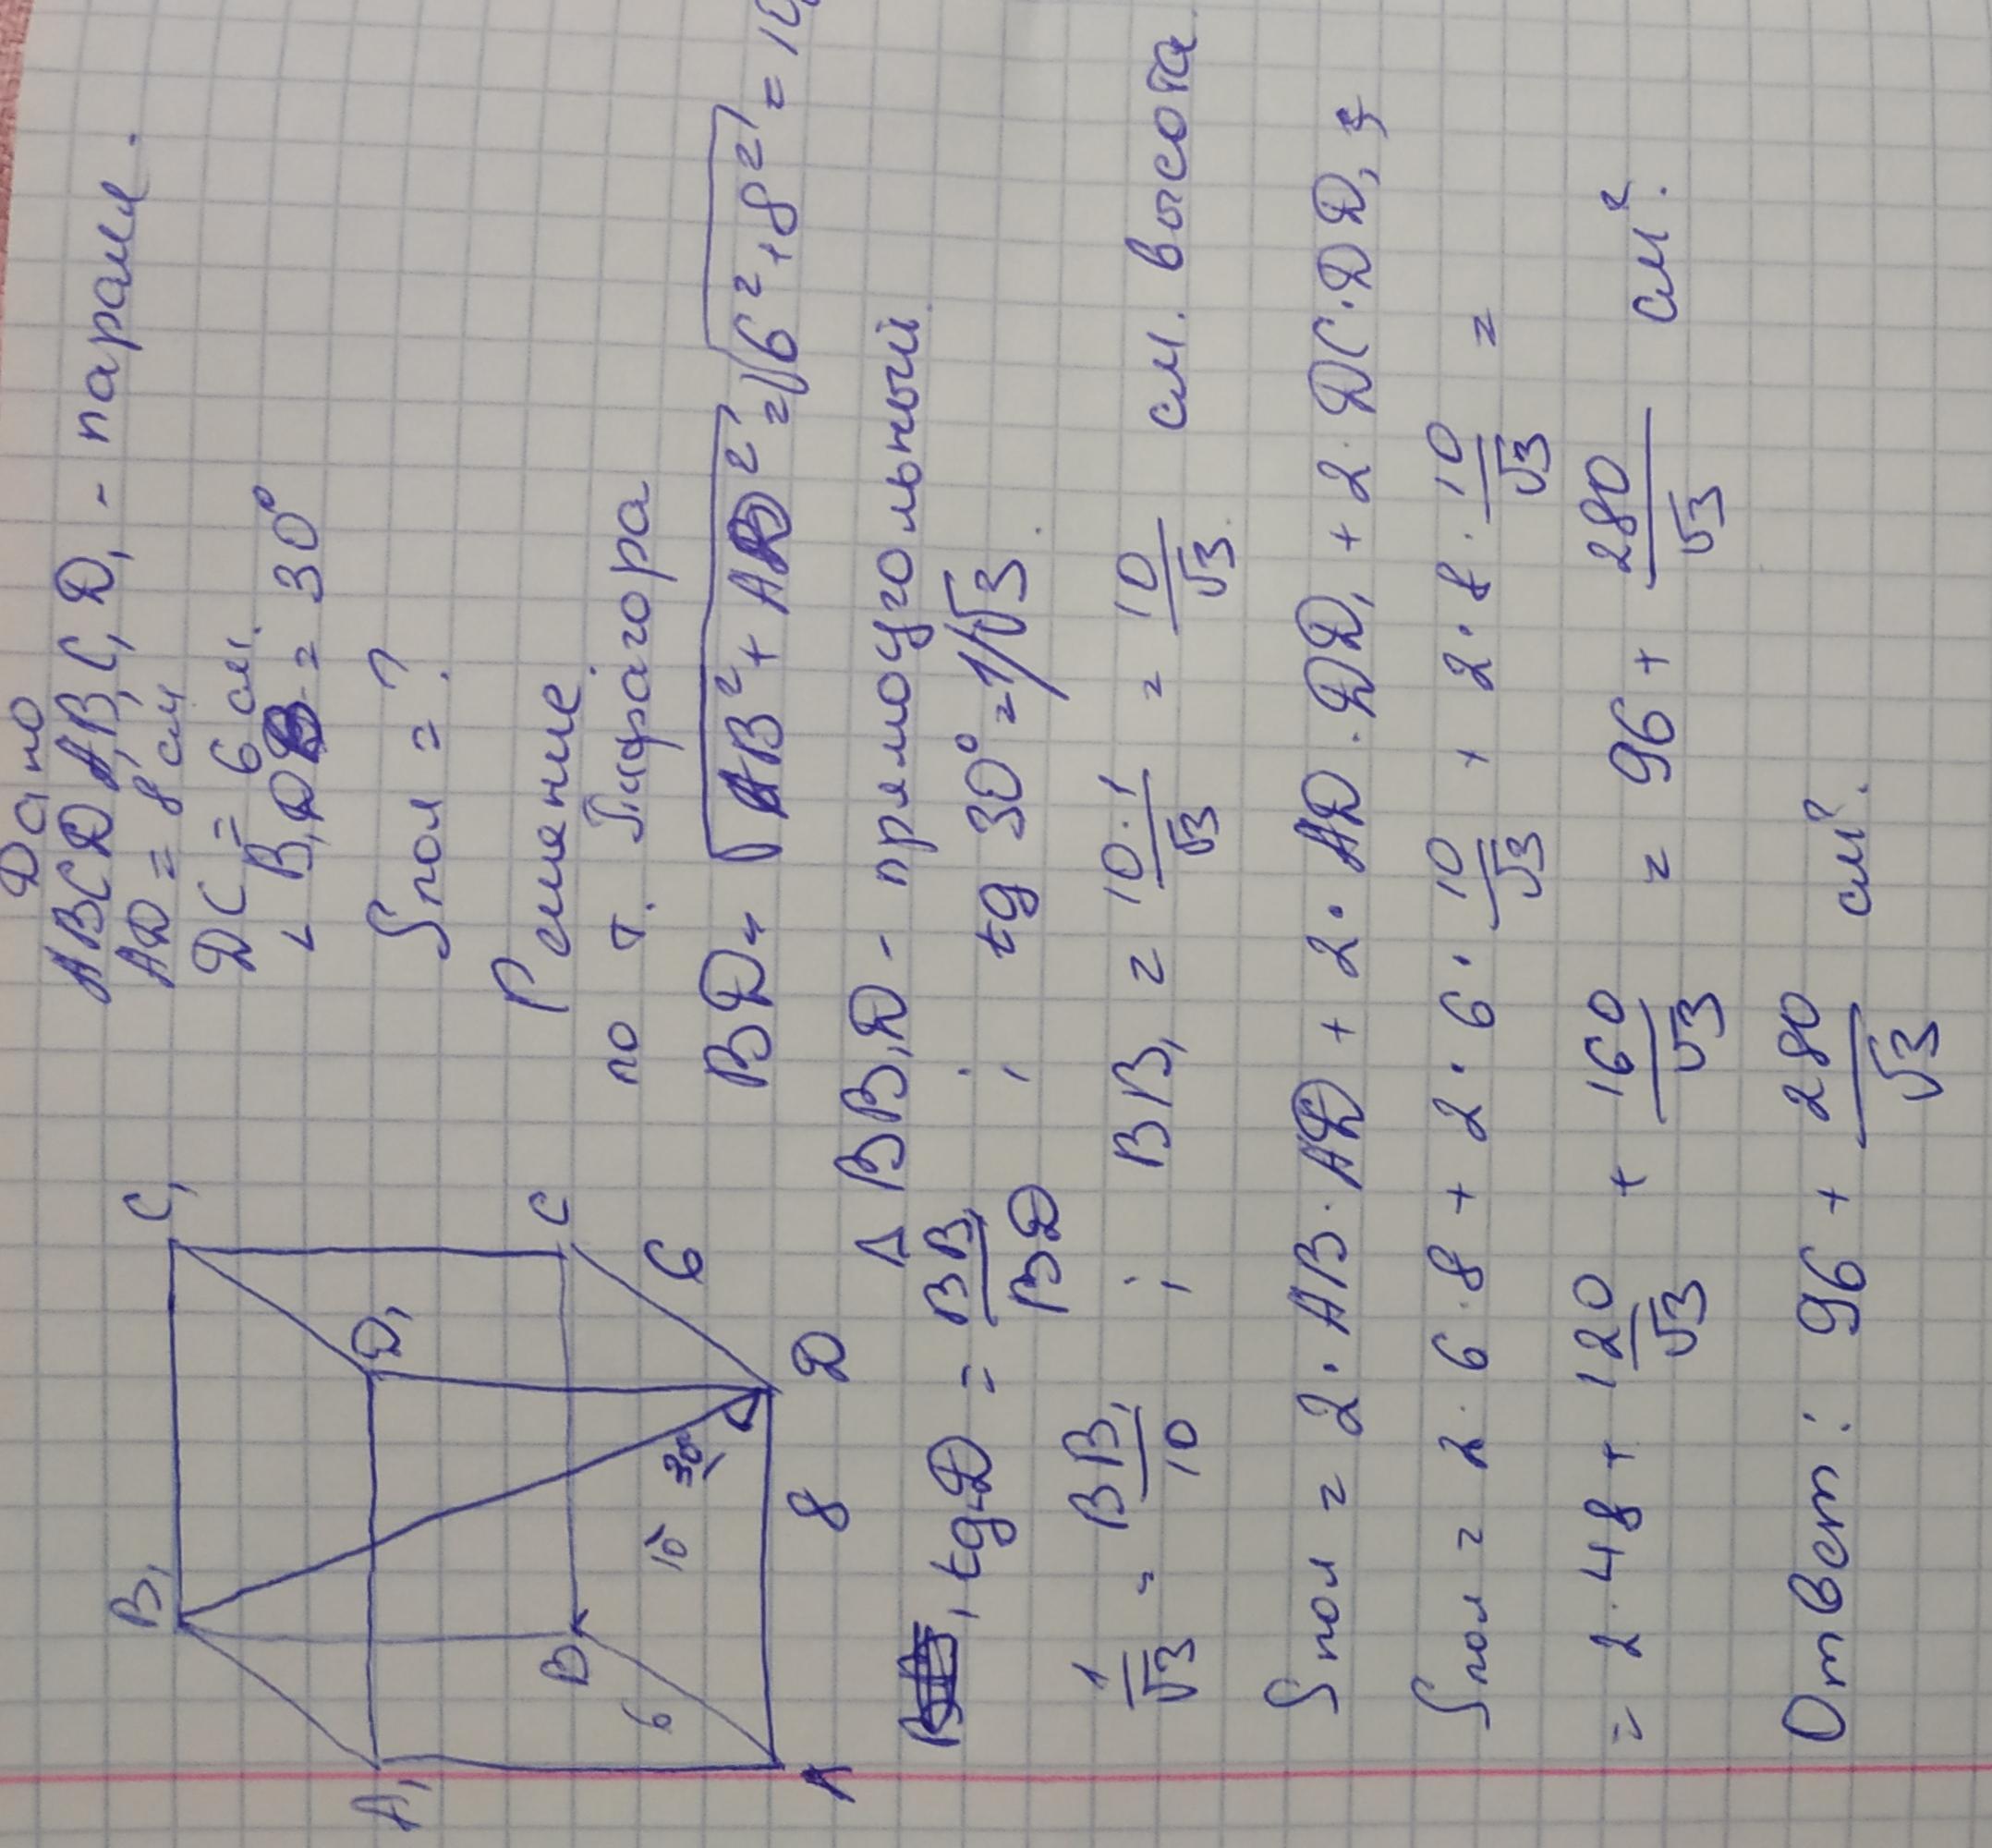 Дано
ABCDA₁B₁C₁D₁ - парам.
AD = 8 см
DC = 6 см.
∟ B₁DB = 30°
Sпол = ?
B₁
C₁
A₁
D₁
B
C
6
10
30°
6
A
8
D
Решение.
по т. Пифагора
BD = √AB² + AD² = √6² + 8² = 10
Δ BB₁D - прямоугольный.
, tg D = BB₁/BD ; tg 30° = 1/√3.
1/√3 = BB₁/10 ; BB₁ = 10·1/√3 = 10/√3 см. высота.
Sпол = 2·AB·AD + 2·AD·DD₁ + 2·DC·DD₁;
Sпол = 2·6·8 + 2·6·10/√3 + 2·8·10/√3 =
= 2·48 + 120/√3 + 160/√3 = 96 + 280/√3 см².
Ответ: 96 + 280/√3 см².